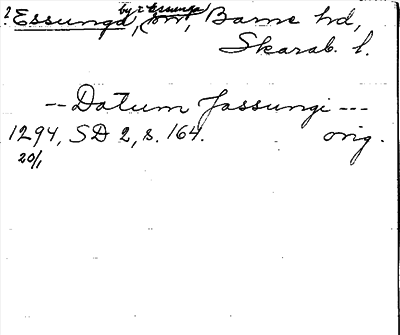 ? Essunga, by i Essunga sn, Barne hd,
Skarab. l.
-- Datum Jassungi ---
1294, SD 2, s. 164. orig.
20/1